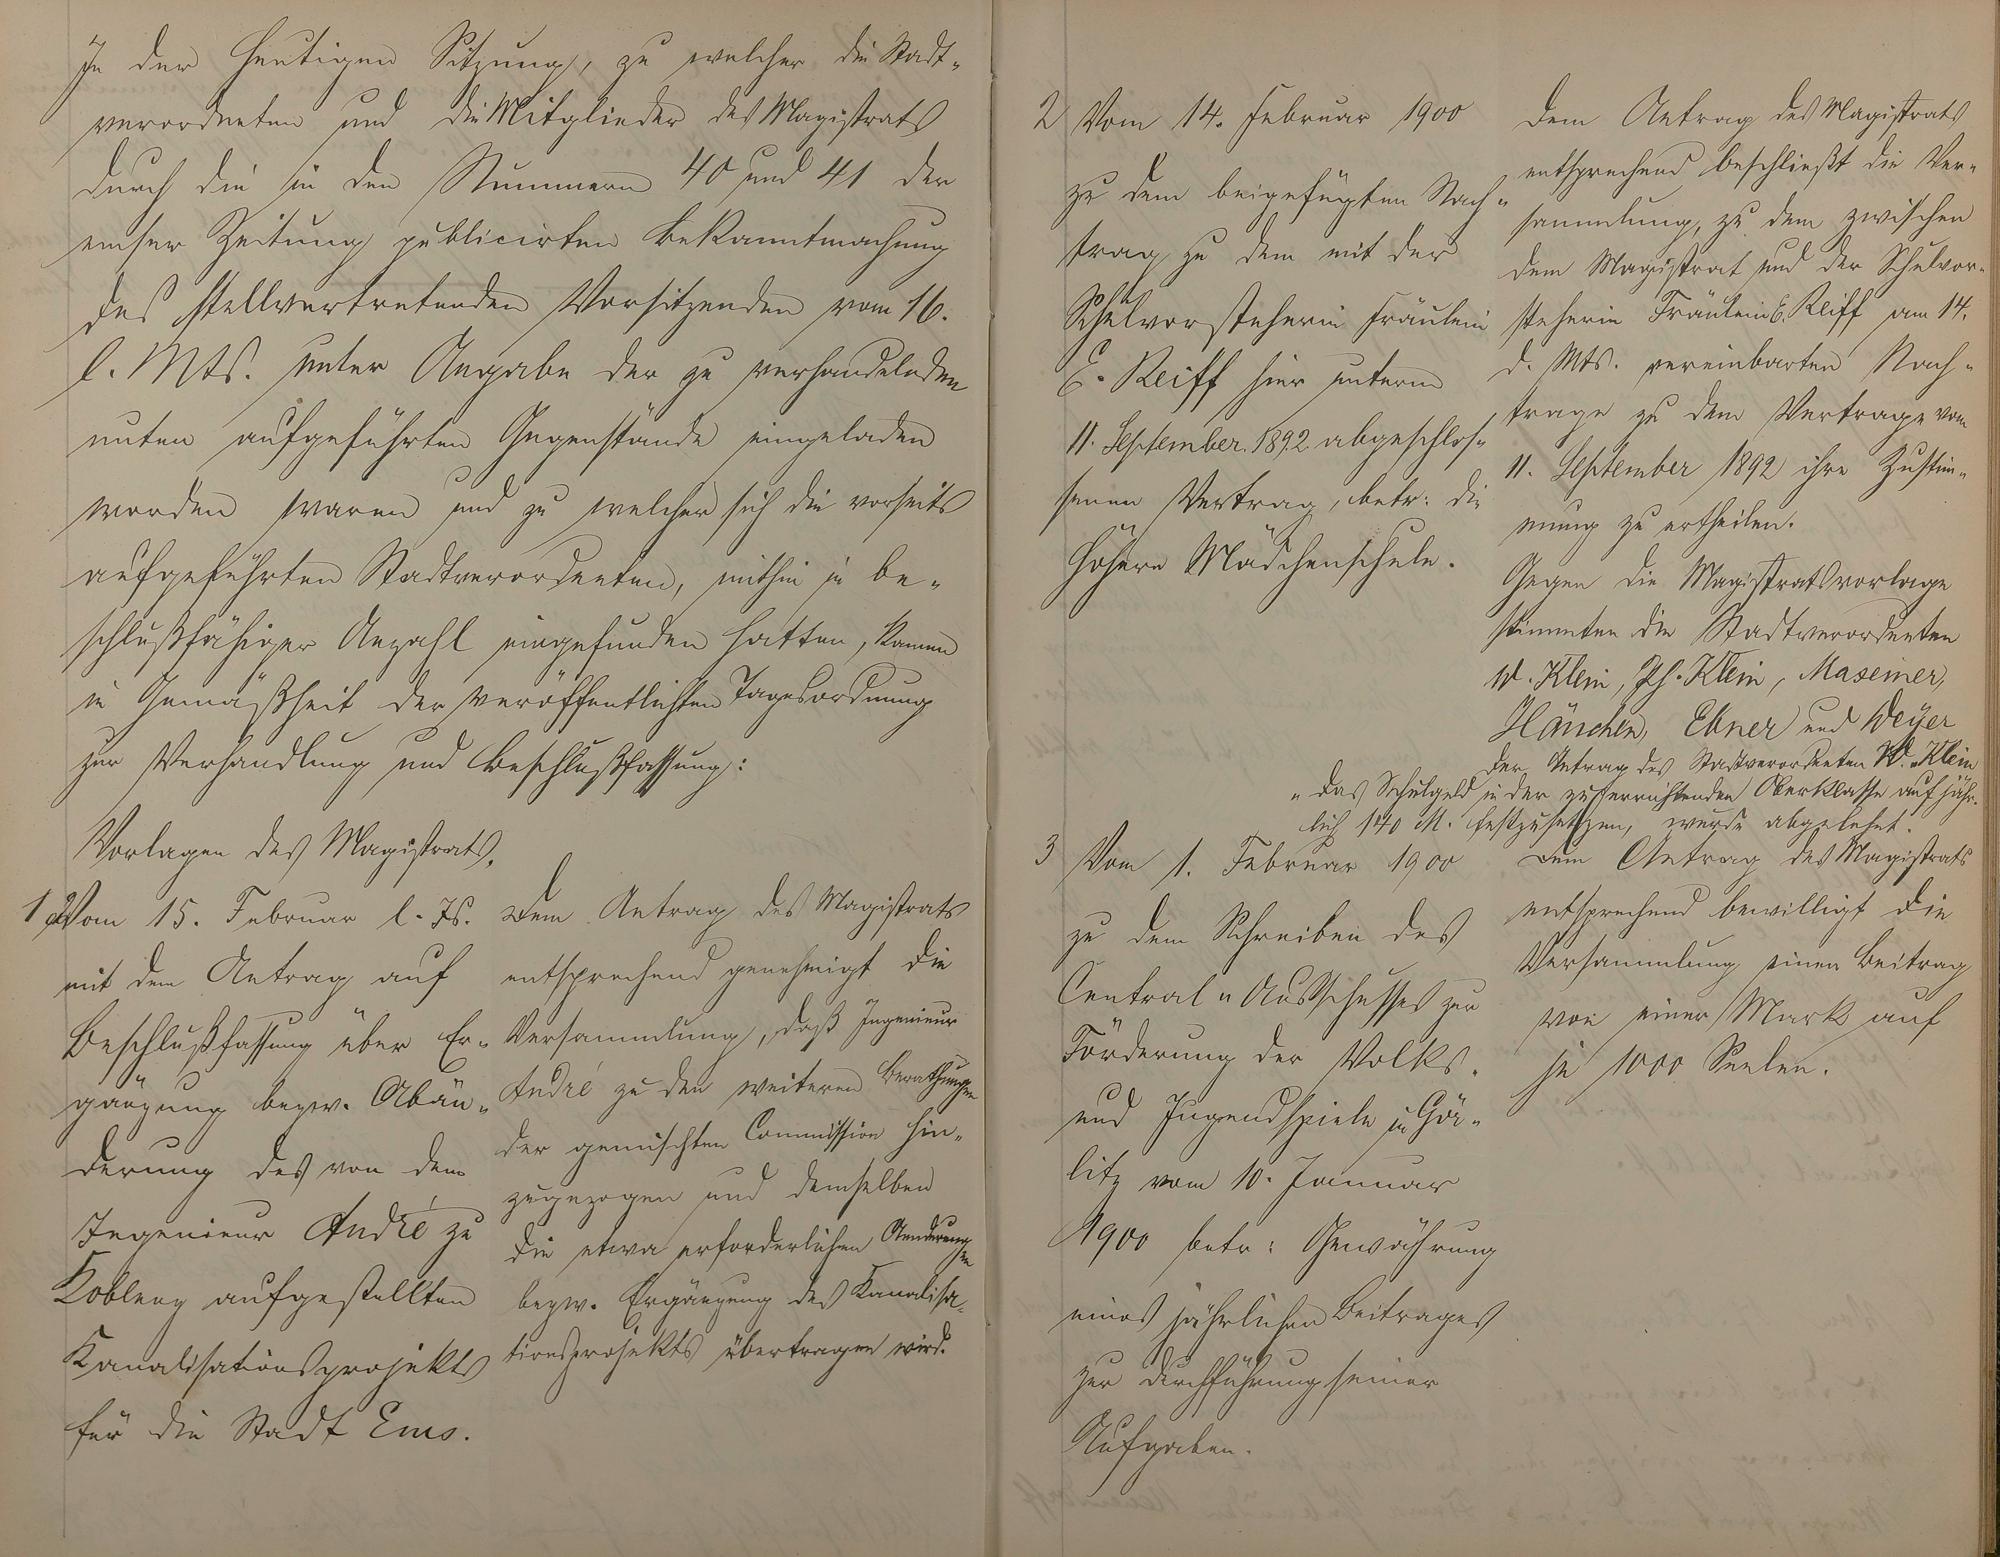 In der heutigen Sitzung, zu welcher die Stadt-
verordneten und die Mitglieder des Magistrats
durch die in den Nummern 40 und 41 der
emser Zeitung publicirten Bekanntmachung
des stellvertretenden Vorsitzenden vom 16.
l. Mts. unter Angabe der zu verhandelnden
unten aufgeführten Gegenstände eingeladen
worden waren und zu welcher sich die vorseits
aufgeführten Stadtverordneten, mithin in be-
schlußfähiger Anzahl eingefunden hatten, kamen
in Gemäßheit der veröffentlichten Tagesordnung
zur Verhandlung und Beschlußfassung:
Vorlagen des Magistrats.
1, Vom 15. Februar l. Js.
mit dem Antrag auf
Beschlußfassung über Er-
gänzung bezw. Abän-
derung des von dem
Ingenieur André zu
Koblenz aufgestellten
Kanalisationsprojekts
für die Stadt Ems.
Dem Antrag des Magistrats
entsprechend genehmigt die
Versammlung, daß Ingenieur
André zu den weiteren Berathungen
der gemischten Commission hin-
zugezogen und demselben
die etwa erforderlichen Aenderungen
bezw. Ergänzung des Kanalisa-
tionsprojekts übertragen wird.
2 Vom 14. Februar 1900
zu dem beigefügten Nach-
trag zu dem mit der
Schulvorsteherin Fräulein
E. Reiff hier unterm
11. September 1892 abgeschlos-
senen Vertrag, betr: die
höhere Mädchenschule.
Dem Antrag des Magistrats
entsprechend beschließt die Ver-
sammlung, zu dem zwischen
dem Magistrat und der Schulvor-
steherin Fräulein E. Reiff am 14.
d. Mts. vereinbarten Nach-
trage zu dem Vertrage vom
11. September 1892 ihre Zustim-
mung zu ertheilen.
Gegen die Magistratsvorlage
stimmten die Stadtverordneten
W. Klein, Ph. Klein, Maxeiner,
Hänchen, Ebner und Weyer
Der Antrag des Stadtverordneten W. Klein
"das Schulgeld in der zu errichtenden Oberklasse auf jähr-
lich 140 M. festzusetzen, wurde abgelehnt.
3 Vom 1. Februar 1900
zu dem Schreiben des
Central-Ausschusses zur
Förderung der Volks-
und Jugendspiele in Gör-
litz vom 10. Januar
1900 betr: Gewährung
eines jährlichen Beitrages
zur Durchführung seiner
Aufgaben.
Dem Antrag des Magistrats
entsprechend bewilligt die
Versammlung einen Beitrag
von einer Mark auf
je 1000 Seelen.